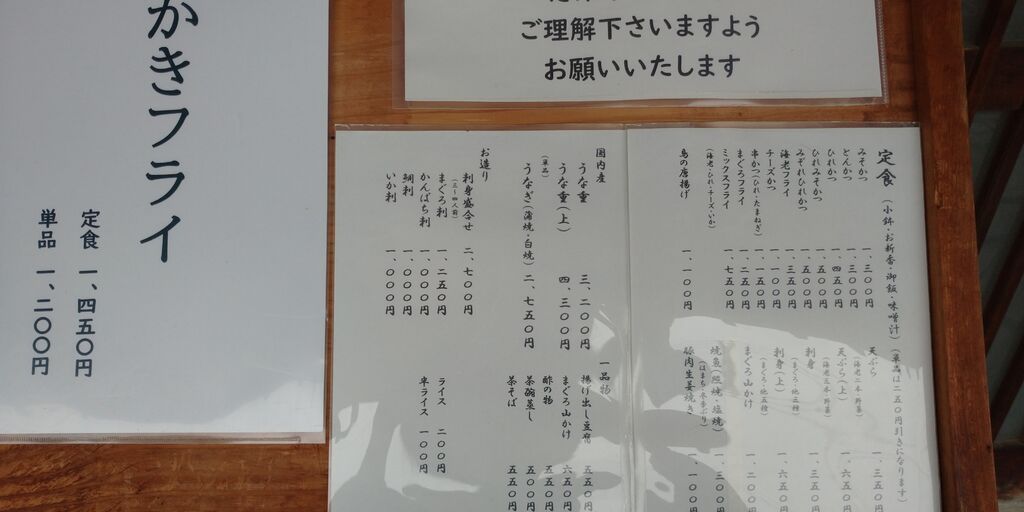 かきフライ
定食 一、四五〇円
単品 一、二〇〇円
ご理解下さいますよう
お願いいたします
定食(小鉢・お新香・御飯・味噌汁)(単品は二五〇円引きになります)
みそかつ 一、三〇〇円
とんかつ 一、三〇〇円
ひれかつ 一、四五〇円
ひれみそかつ 一、五〇〇円
みぞれひれかつ 一、五〇〇円
海老フライ 一、三五〇円
チーズかつ 一、一〇〇円
串かつ(ひれ・たまねぎ) 一、一五〇円
まぐろフライ 一、二五〇円
ミックスフライ 一、七五〇円
(海老・ひれ・チーズ・いか)
鳥の唐揚げ 一、一〇〇円
天ぷら 一、三五〇円
(海老二本・野菜)
天ぷら(上) 一、六五〇円
(海老三本・野菜)
刺身 一、三五〇円
刺身(上) 一、六五〇円
(まぐろ・他五種)
まぐろ山かけ 一、二〇〇円
焼魚(照焼・塩焼) 一、三〇〇円
豚肉生姜焼き 一、一〇〇円
国内産
うな重 三、二〇〇円
うな重(上) 四、三〇〇円
(単品)
うなぎ(蒲焼・白焼) 二、七五〇円
お造り
刺身盛合せ 二、七〇〇円
(三〜四人前)
まぐろ刺 一、二五〇円
かんぱち刺 一、二〇〇円
鯛刺 一、〇〇〇円
いか刺 一、〇〇〇円
一品物
揚げ出し豆腐 五五〇円
まぐろ山かけ 六五〇円
酢の物 五五〇円
茶碗蒸し 五五〇円
茶そば 五五〇円
ライス 二〇〇円
半ライス 一〇〇円